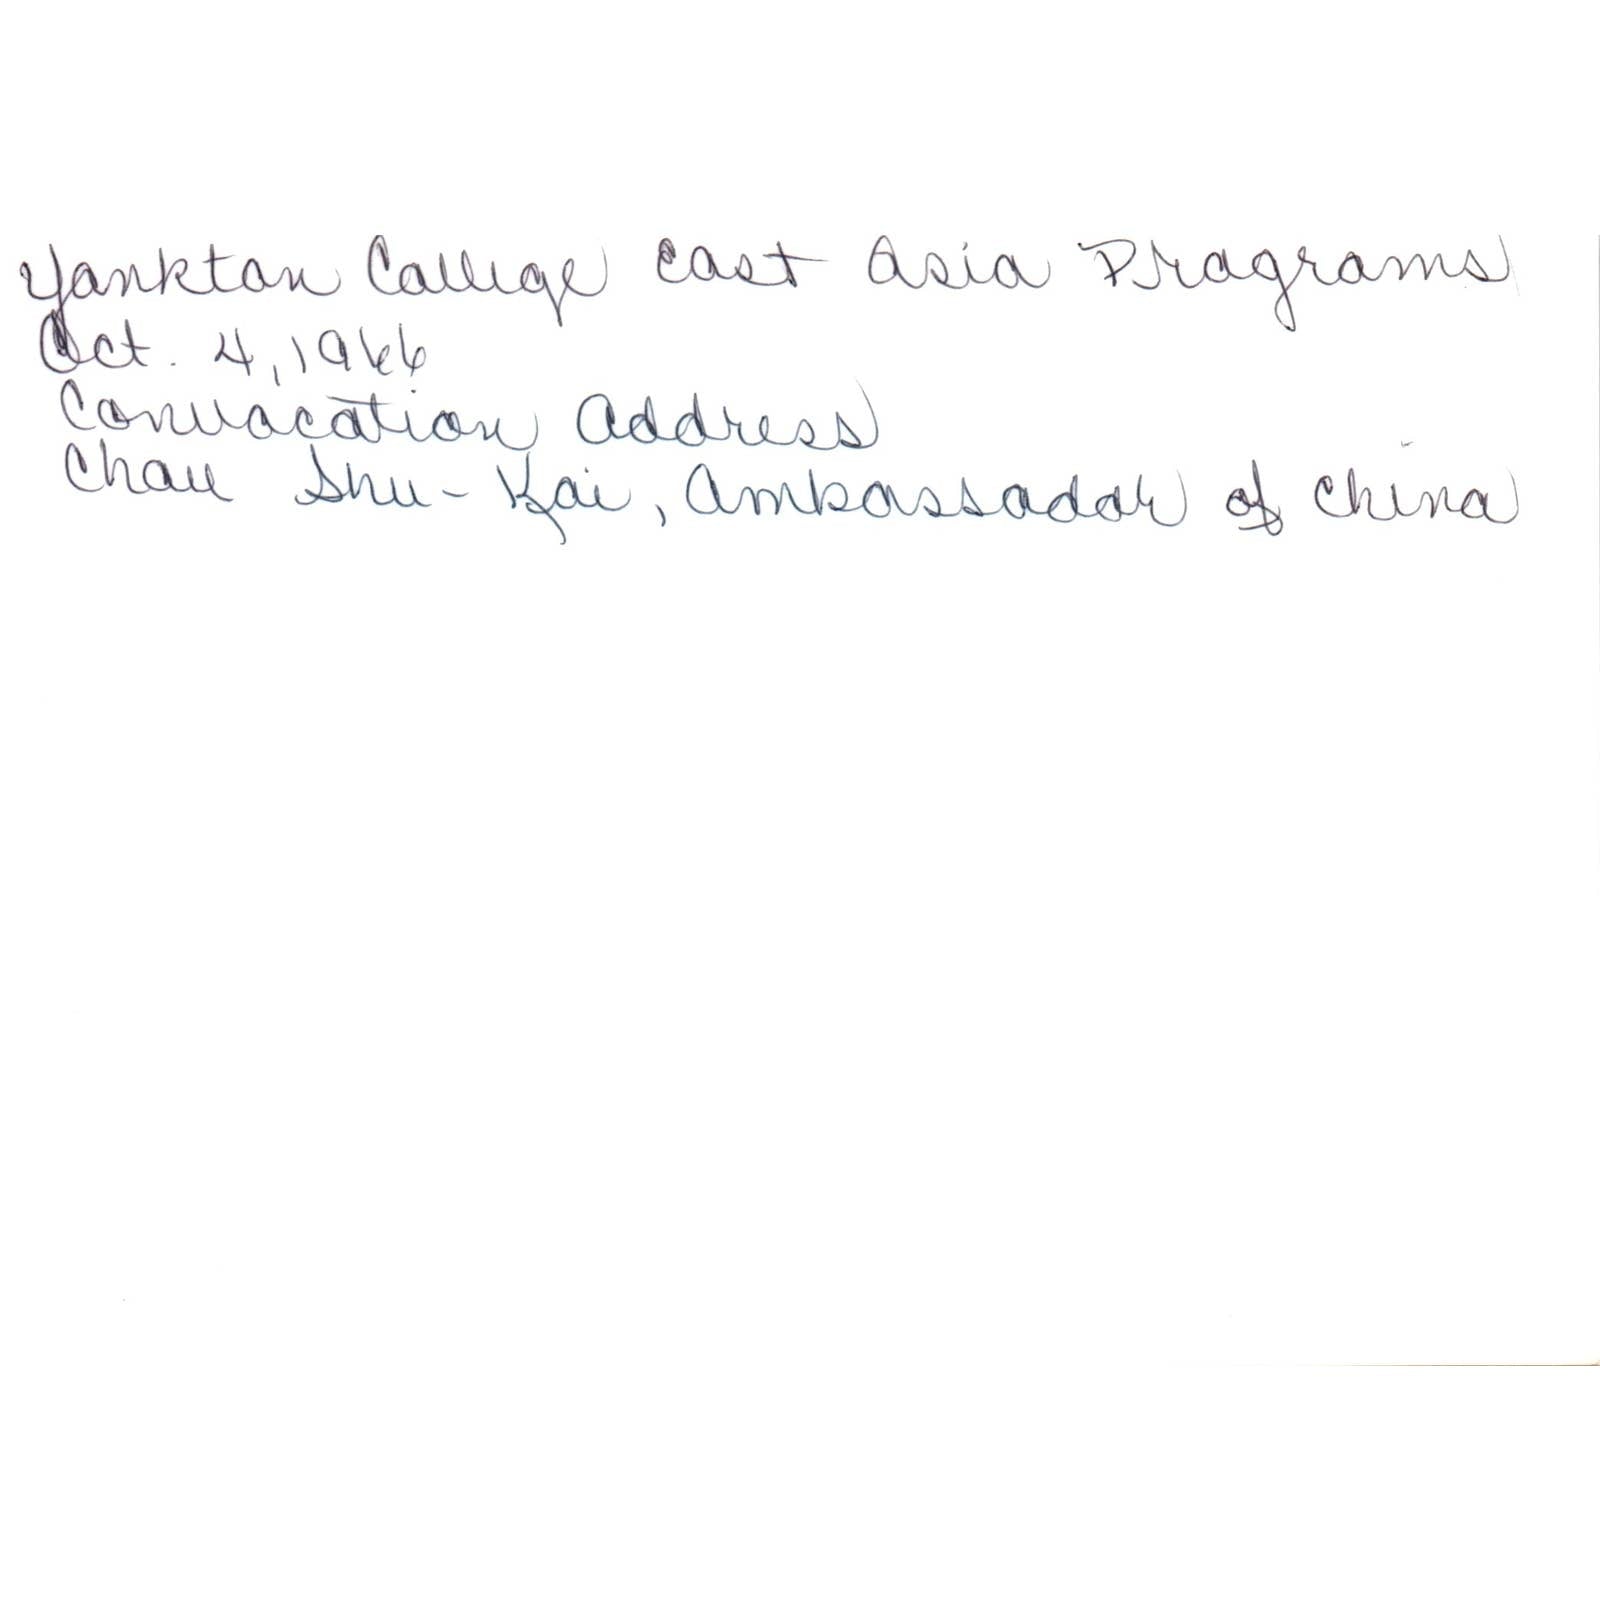 Yankton College East Asia Programs
Oct. 4, 1966
Convocation Address
Chau Shu-Kai, Ambassador of China